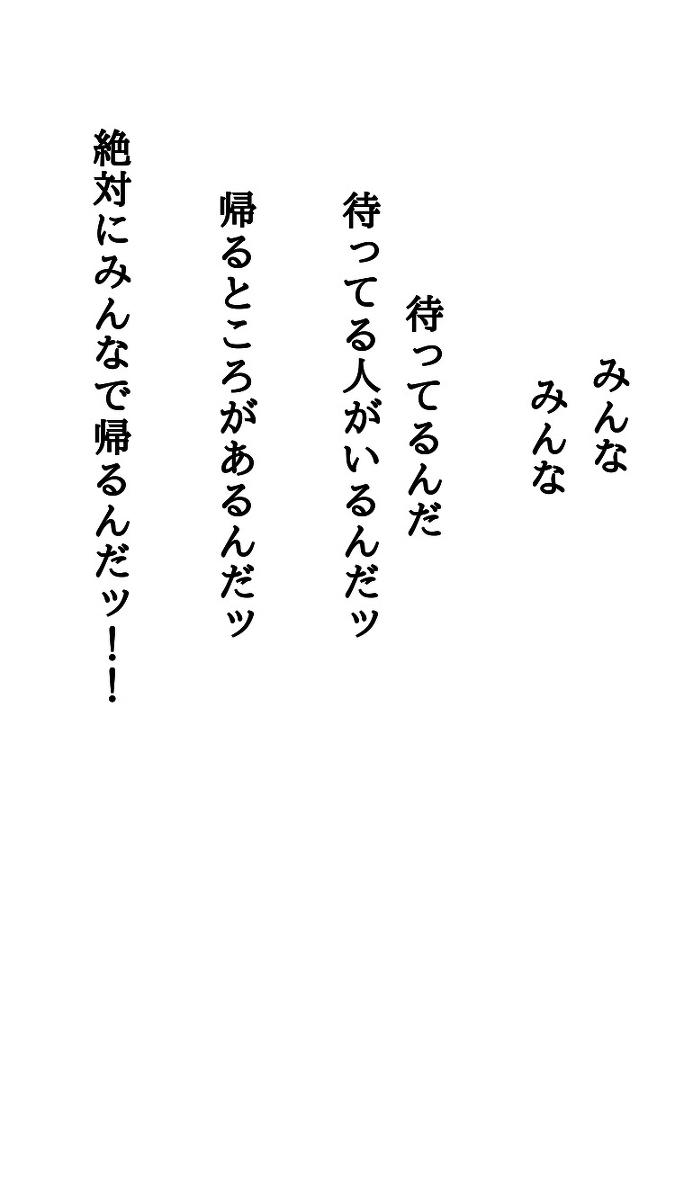 みんな
みんな
待ってるんだ
待ってる人がいるんだッ
帰るところがあるんだッ
絶対にみんなで帰るんだッ！！